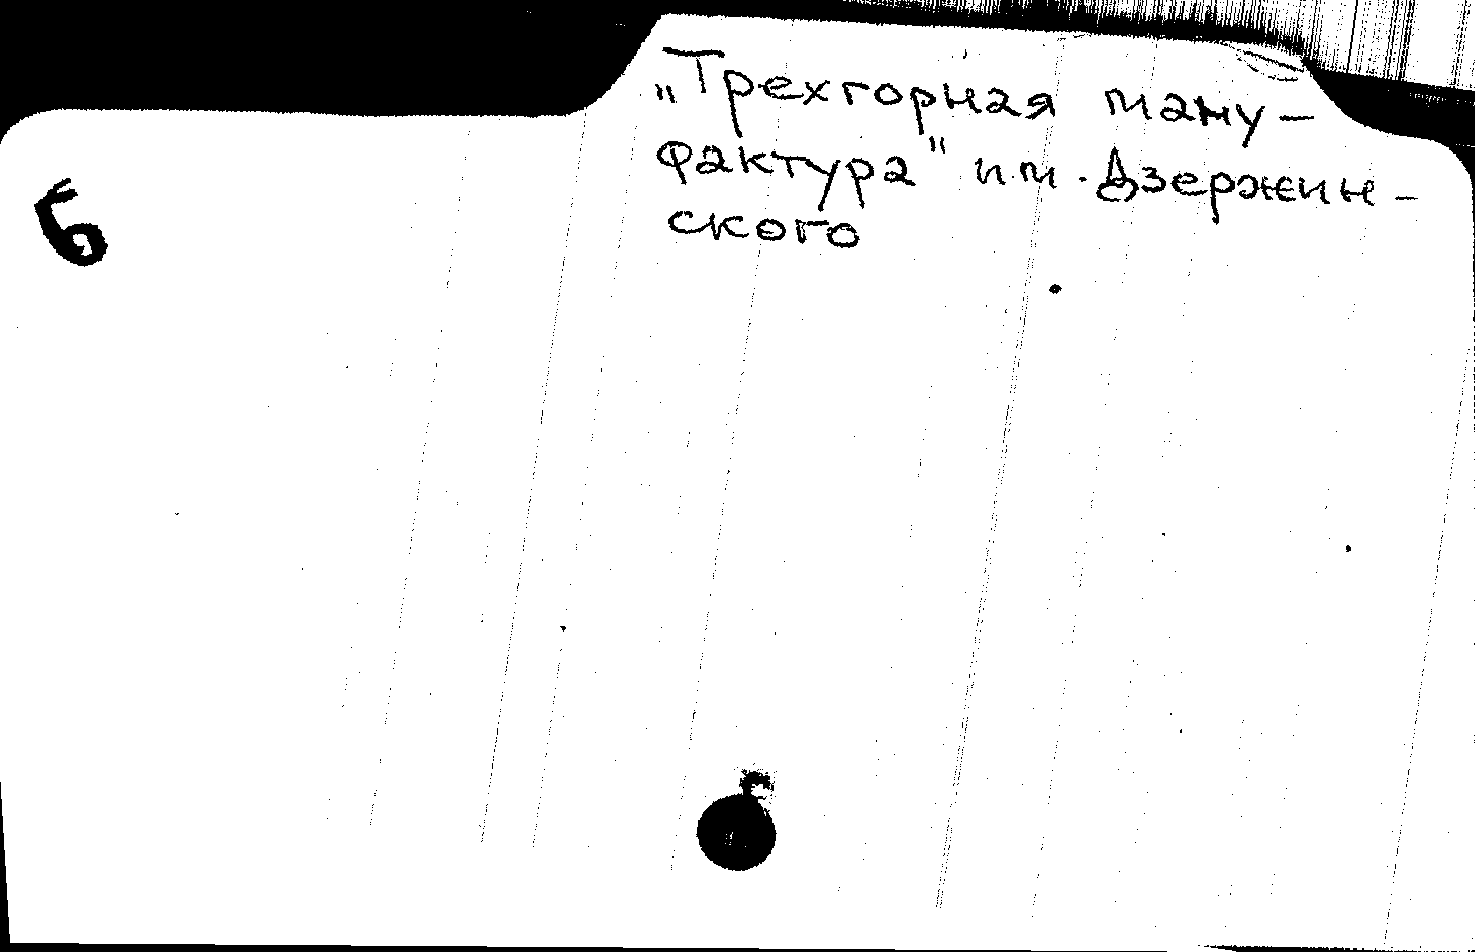 „Трехгорная ману-
фактура" им. Дзержин-
ского
Б